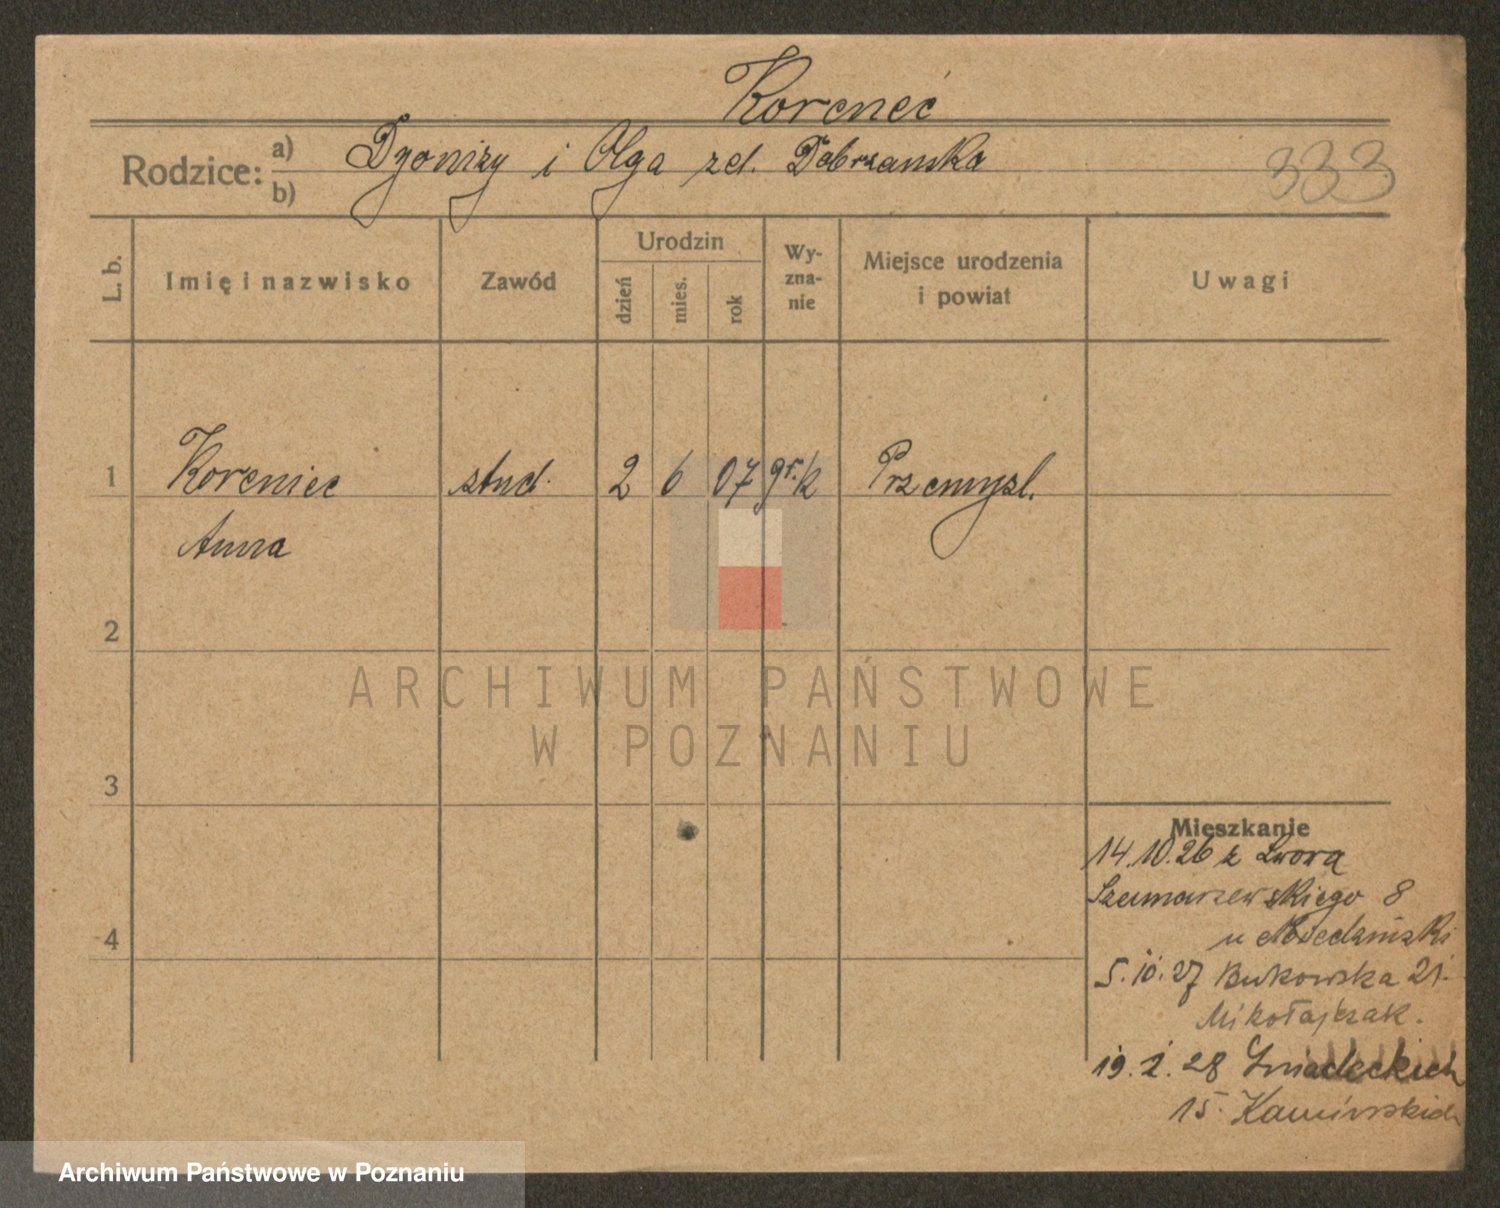 Korcneć
Rodzice: a) Dyonizy i Olga zd. Dobrzanska
b)
333
L. b.
Imię i nazwisko
Zawód
Urodzin
dzień
mies.
rok
Wy-
zna-
nie
Miejsce urodzenia
i powiat
Uwagi
1 Korcniec stud. 2 6 07 gr. k Przemysl.
Anna
2
3
4
Mieszkanie
14.10.26 z Lwora
Szamarzewskiego 8
u
5.10.27 Bukowska 21.
Mikołajczak.
19.1.28 Śniadeckich
15.
ARCHIWUM PAŃSTWOWE
W POZNANIU
Archiwum Państwowe w Poznaniu